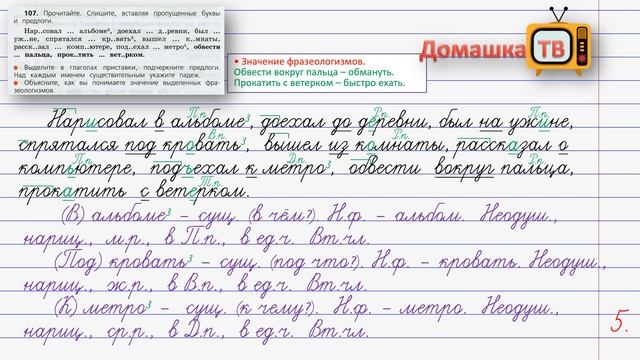 107. Прочитайте. Спишите, вставляя пропущенные буквы
и предлоги.
Нар..совал ... альбоме³, доехал ... д..ревни, был ...
уж..не, спрятался ... кр..вать³, вышел ... к..мнаты,
расск..зал ... комп..ютере, под..ехал ... метро³, обвести
... пальца, прок..тить ... вет..рком.
● Выделите в глаголах приставки, подчеркните предлоги.
Над каждым именем существительным укажите падеж.
● Объясните, как вы понимаете значение выделенных фра-
зеологизмов.
• Значение фразеологизмов.
Обвести вокруг пальца – обмануть.
Прокатить с ветерком – быстро ехать.
Домашка ТВ
П.п. Р.п. П.п.
Нарисовал в альбоме³, доехал до деревни, был на ужине,
В.п. Р.п.
спрятался под кровать³, вышел из комнаты, рассказал о
П.п. Д.п. Р.п.
компьютере, подъехал к метро³, обвести вокруг пальца,
Т.п.
прокатить с ветерком.
(В) альбоме³ – сущ. (в чём?). Н.ф. – альбом. Неодуш.,
нариц., м.р., в П.п., в ед.ч. Вт.чл.
(Под) кровать³ – сущ. (под что?). Н.ф. – кровать. Неодуш.,
нариц., ж.р., в В.п., в ед.ч. Вт.чл.
(К) метро³ – сущ. (к чему?). Н.ф. – метро. Неодуш.,
нариц., ср.р., в Д.п., в ед.ч. Вт.чл.
5.